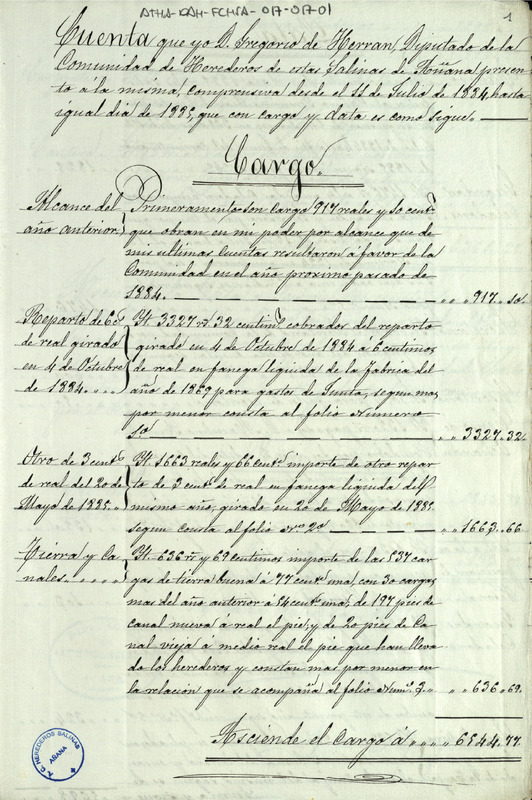 ATHA-DAH-FCHSA-017-017-01
1
Cuenta que yo D. Gregorio de Herran, Diputado de la
Comunidad de Herederos de estas Salinas de Añana presen-
to á la misma, comprensiva desde el 11 de Julio de 1884, hasta
igual dia de 1885, que con cargo y data es como sigue.
Cargo.
Alcance del
año anterior.
Primeramente son cargo 917 reales y 10 cents
que obran en mi poder por alcance que de
mis ultimas Cuentas resultaron á favor de la
Comunidad en el año proximo pasado de
1884. " " 917. 10.
Reparto de 6 cs
de real girado
en 4 de Octubre
de 1884. " "
Yt 3327 rs. 32 centims cobrados del reparto
girado en 4 de Octubre de 1884 á 6 centimos
de real en fanega liquida de la fabrica del
año de 1869 para gastos de Junta, segun mas
por menor consta al folio Numero
1º " " 3327. 32.
Otro de 3 cents
de real del 20 de
Mayo de 1885.
Yt. 1663 reales y 66 cents importe de otro repar-
to de 3 cents de real en fanega liquida del
mismo año, girado en 20 de Mayo de 1885.
segun consta al folio Nro 2º " " 1663. 66.
Tierra y Ca-
nales. . . . .
Yt. 636 rs. y 69 centimos importe de las 537 car-
gas de tierra buena á 77 cents una, con 30 cargas
mas del año anterior á 54 cents una, de 197 pies de
canal nueva á real el pie, y de 20 pies de Ca-
nal vieja á medio real el pie que han lleva-
do los herederos y constan mas por menor en
la relacion que se acompaña al folio Num. 3. " " 636. 69.
Asciende el Cargo á " " " " 6544. 77.
C. HEREDEROS SALINAS
AÑANA